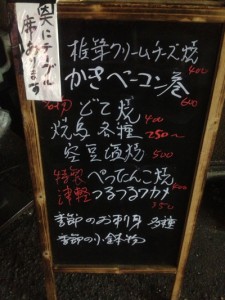 奥にテーブル
席あります
椎茸クリームチーズ焼
400
かきベーコン巻
600
名物 どて焼
400
焼鳥各種 250〜
空豆塩焼 500
特製 ぺったんこ焼
400
津軽つるつるワカメ
350
季節のお刺身 各種
季節の小鉢物